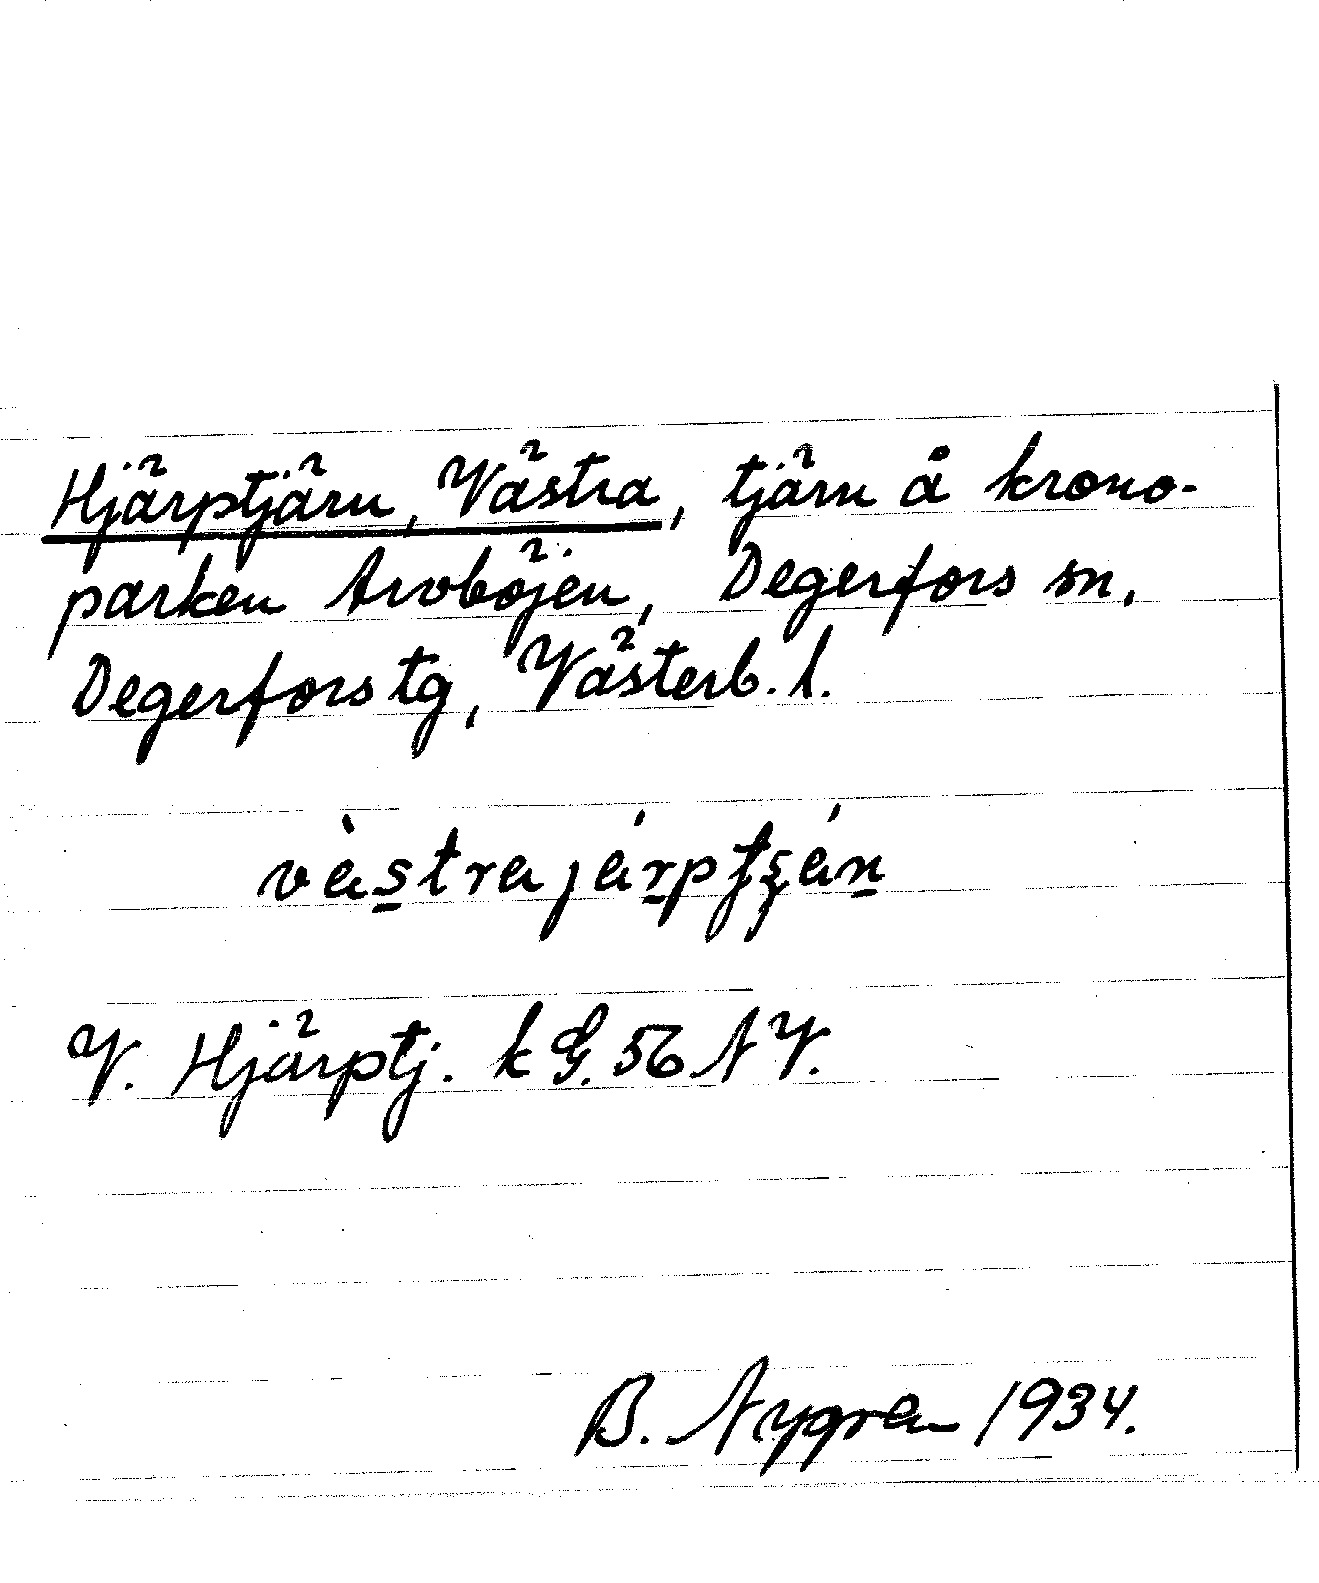 Hjärptjärn, Västra, tjärn å krono-
parken Arvböjen, Degerfors sn,
Degerfors tg, Västerb. l.
västrajärptʂän
V. Hjärptj. k G. 56 NV.
B. Nygren 1934.